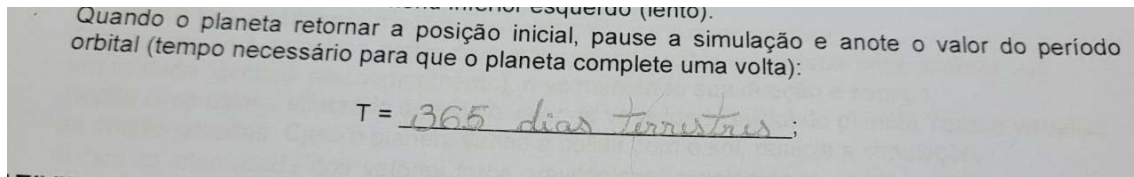 esquerdo (lento).
Quando o planeta retornar a posição inicial, pause a simulação e anote o valor do período
orbital (tempo necessário para que o planeta complete uma volta):
T = 365 dias terrestres;